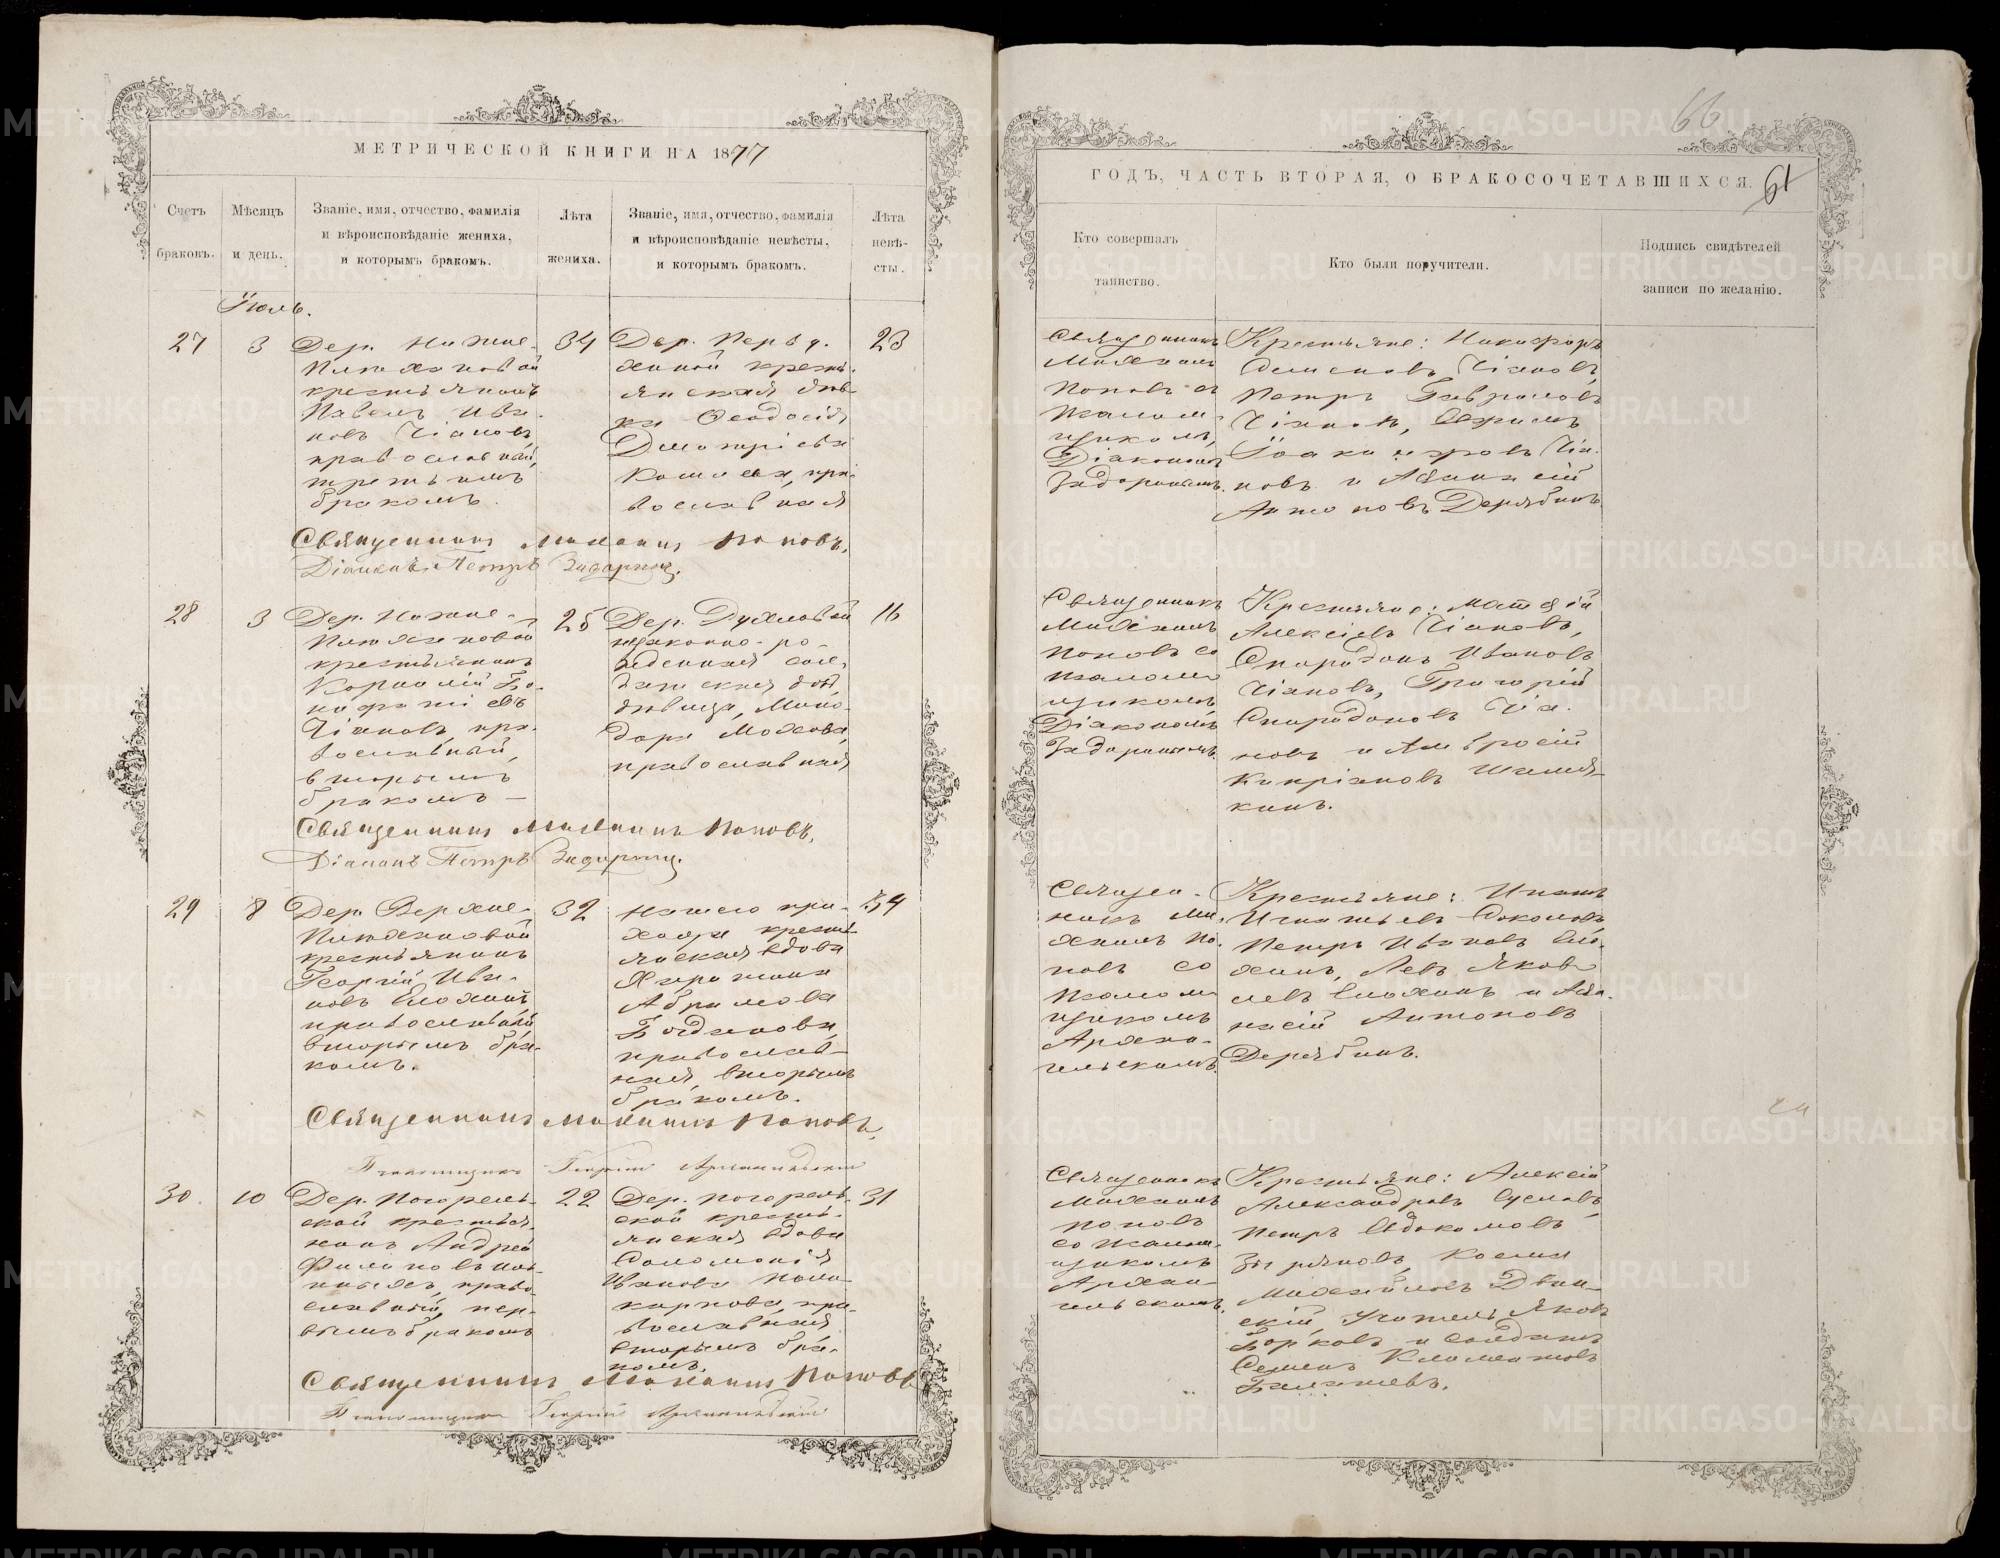 МЕТРИЧЕСКОЙ КНИГИ НА 1877
Счетъ
браковъ.
Мѣсяцъ
и день.
Званіе, имя, отчество, фамилія
и вѣроисповѣданіе жениха,
и которымъ бракомъ.
Лѣта
жениха.
Званіе, имя, отчество, фамилія
и вѣроисповѣданіе невѣсты,
и которымъ бракомъ.
Лѣта
невѣ-
сты.
Іюль.
27
3
Дер. Нижне-
крестьянинъ
Павелъ Ива-
новъ Чіановъ,
православный,
третьимъ
бракомъ.
34
Дер. Перву-
хиной кресть-
янская дѣв-
ка Ѳеодосія
Димитріева
православная
23
Священникъ Михаилъ Поповъ,
Діаконъ Петръ
28
3
Дер. Нижне-
крестьянинъ
Корнилій Бо-
нифатіевъ
Чіановъ, пра-
вославный,
вторымъ
бракомъ —
25
Дер.
незаконно-ро-
жденная сол-
датская
дѣвица, Мино-
дора Мохова,
православная
16
Священникъ Михаилъ Поповъ,
Діаконъ Петръ
29
8
Дер. Верхне-
крестьянинъ
Георгій Ива-
новъ Блохинъ,
православный
вторымъ бра-
комъ.
32
Нашего при-
хода кресть-
янская вдова
Абрамова
Богданова,
православ-
ная, вторымъ
бракомъ.
34
Священникъ Михаилъ Поповъ,
Псаломщикъ Георгій Архангельскій
30.
10
Дер. Погорель-
ской крестья-
нинъ Андрей
Филиповъ
право-
славный, пер-
вымъ бракомъ
22
Дер. Погорель-
ской кресть-
янская вдова
Соломонія
Иванова Поли-
карпова, пра-
вославная
вторымъ бра-
комъ.
31
Священникъ Михаилъ Поповъ
Псаломщикъ Георгій Архангельскій
66
ГОДЪ, ЧАСТЬ ВТОРАЯ, О БРАКОСОЧЕТАВШИХСЯ.
61
Кто совершалъ
таинство.
Кто были поручители.
Подпись свидѣтелей
записи по желанію.
Священникъ
Михаилъ
Поповъ съ
Псалом-
щикомъ,
Діакономъ
Крестьяне: Никифоръ
Семеновъ Чіановъ,
Петръ Гавриловъ
Чіановъ, Ефимъ
Чіа-
новъ и Аѳанасій
Антоновъ Дерябинъ
Священникъ
Михаилъ
Поповъ со
псалом-
щикомъ
Діакономъ
Крестьяне: Матѳій
Алексіевъ Чіановъ,
Спиридонъ Ивановъ
Чіановъ, Григорій
Спиридоновъ Чіа-
новъ и Амвросій
Кипріановъ Шемя-
кинъ.
Священ-
никъ Ми-
хаилъ По-
повъ со
Псалом-
щикомъ
Архан-
гельскимъ.
Крестьяне: Игнатъ
Игнатьевъ Соколовъ,
Петръ Ивановъ Бло-
хинъ, Левъ Яков-
левъ Блохинъ и Аѳа-
насій Антоновъ
Дерябинъ.
Священникъ
Михаилъ
Поповъ
со Псалом-
щикомъ
Архан-
гельскимъ.
Крестьяне: Алексій
Александровъ Сусловъ,
Петръ Евдокимовъ
Зыряновъ, Косма
Михайловъ Двин-
скій, Учитель Яковъ
Борковъ и солдатъ
Семенъ Климентовъ
Балашевъ.
METRIKI.GASO-URAL.RU